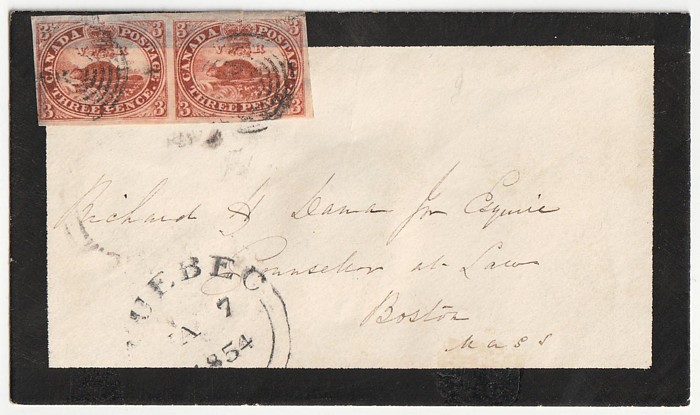 3 CANADA POSTAGE. 3
V R
3 THREE PENCE. 3
3 CANADA POSTAGE. 3
V R
3 THREE PENCE 3
Richard H Dana Jr Esquire
Counselor at Law
Boston
Mass
QUEBEC
7
1854